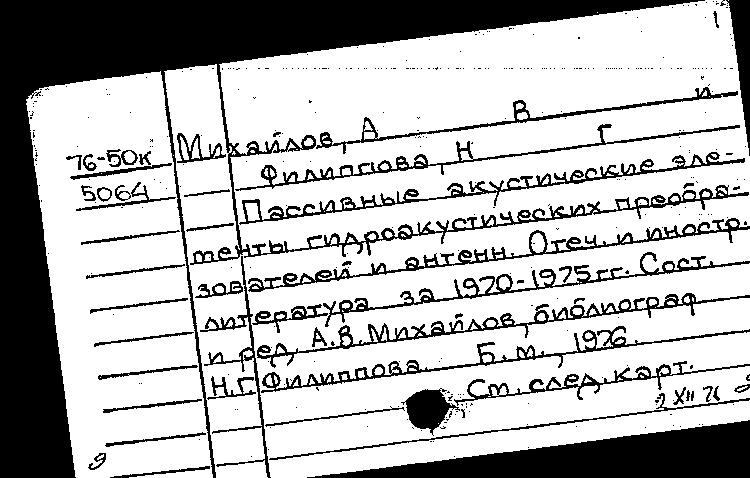 1
76-50к Михайлов, А В и
5064 Филиппова, Н Г
Пассивные акустические эле-
менты гидроакустических преобра-
зователей и антенн. Отеч. и иностр.
литература за 1970-1975 гг. Сост.
и ред. А.В. Михайлов, библиограф
Н.Г. Филиппова. Б.м., 1976.
См. след. карт.
2 XII 76